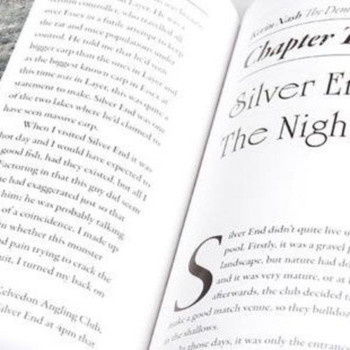 controller, who travelled all
over Essex in a futile attempt to keep
the rat and mice populations under
control. He told me that he'd seen
bigger carp than the ones in Layer and
as the biggest known carp in Essex at
this time was in Layer, this was quite a
statement to make. Silver End was one
of the two lakes where he'd claimed to
have seen massive carp.
When I visited Silver End it was
hot day and I would have expected to
good fish, had they existed, but all I
Factoring in that this guy did seem
he had exaggerated just so that
him; he was probably talking
of a coincidence, I made up
whether this monster
and pain trying to crack the
it, I turned my back on
Kelvedon Angling Club,
Silver End at 4pm that
Kevin Nash The Dem
Chapter T
Silver En
The Nigh
Silver End didn't quite live u
pool. Firstly, it was a gravel p
landscape, but nature had do
and it was very mature, or at l
afterwards, the club decided t
make a good match venue, so they bulldoz
in the shallows.
In those days, it was only the entranc